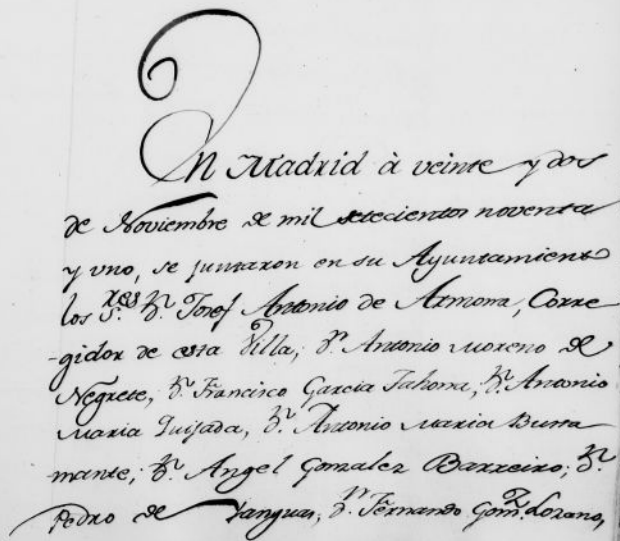 En Madrid à veinte y dos
de Noviembre de mil setecientos noventa
y uno, se juntaron en su Ayuntamiento
los S.res D.n Josef Antonio de Armona, Corre
-gidor de esta Villa, D.n Antonio Moreno de
Negrete, D.n Francisco Garcia Tahona, D.n Antonio
Maria Quijada, D.n Antonio Maria Busta
mante, D.n Angel Gonzalez Barreiro, D.n
Pedro de Yanguas, D.n Fernando Gom.z Lozano,